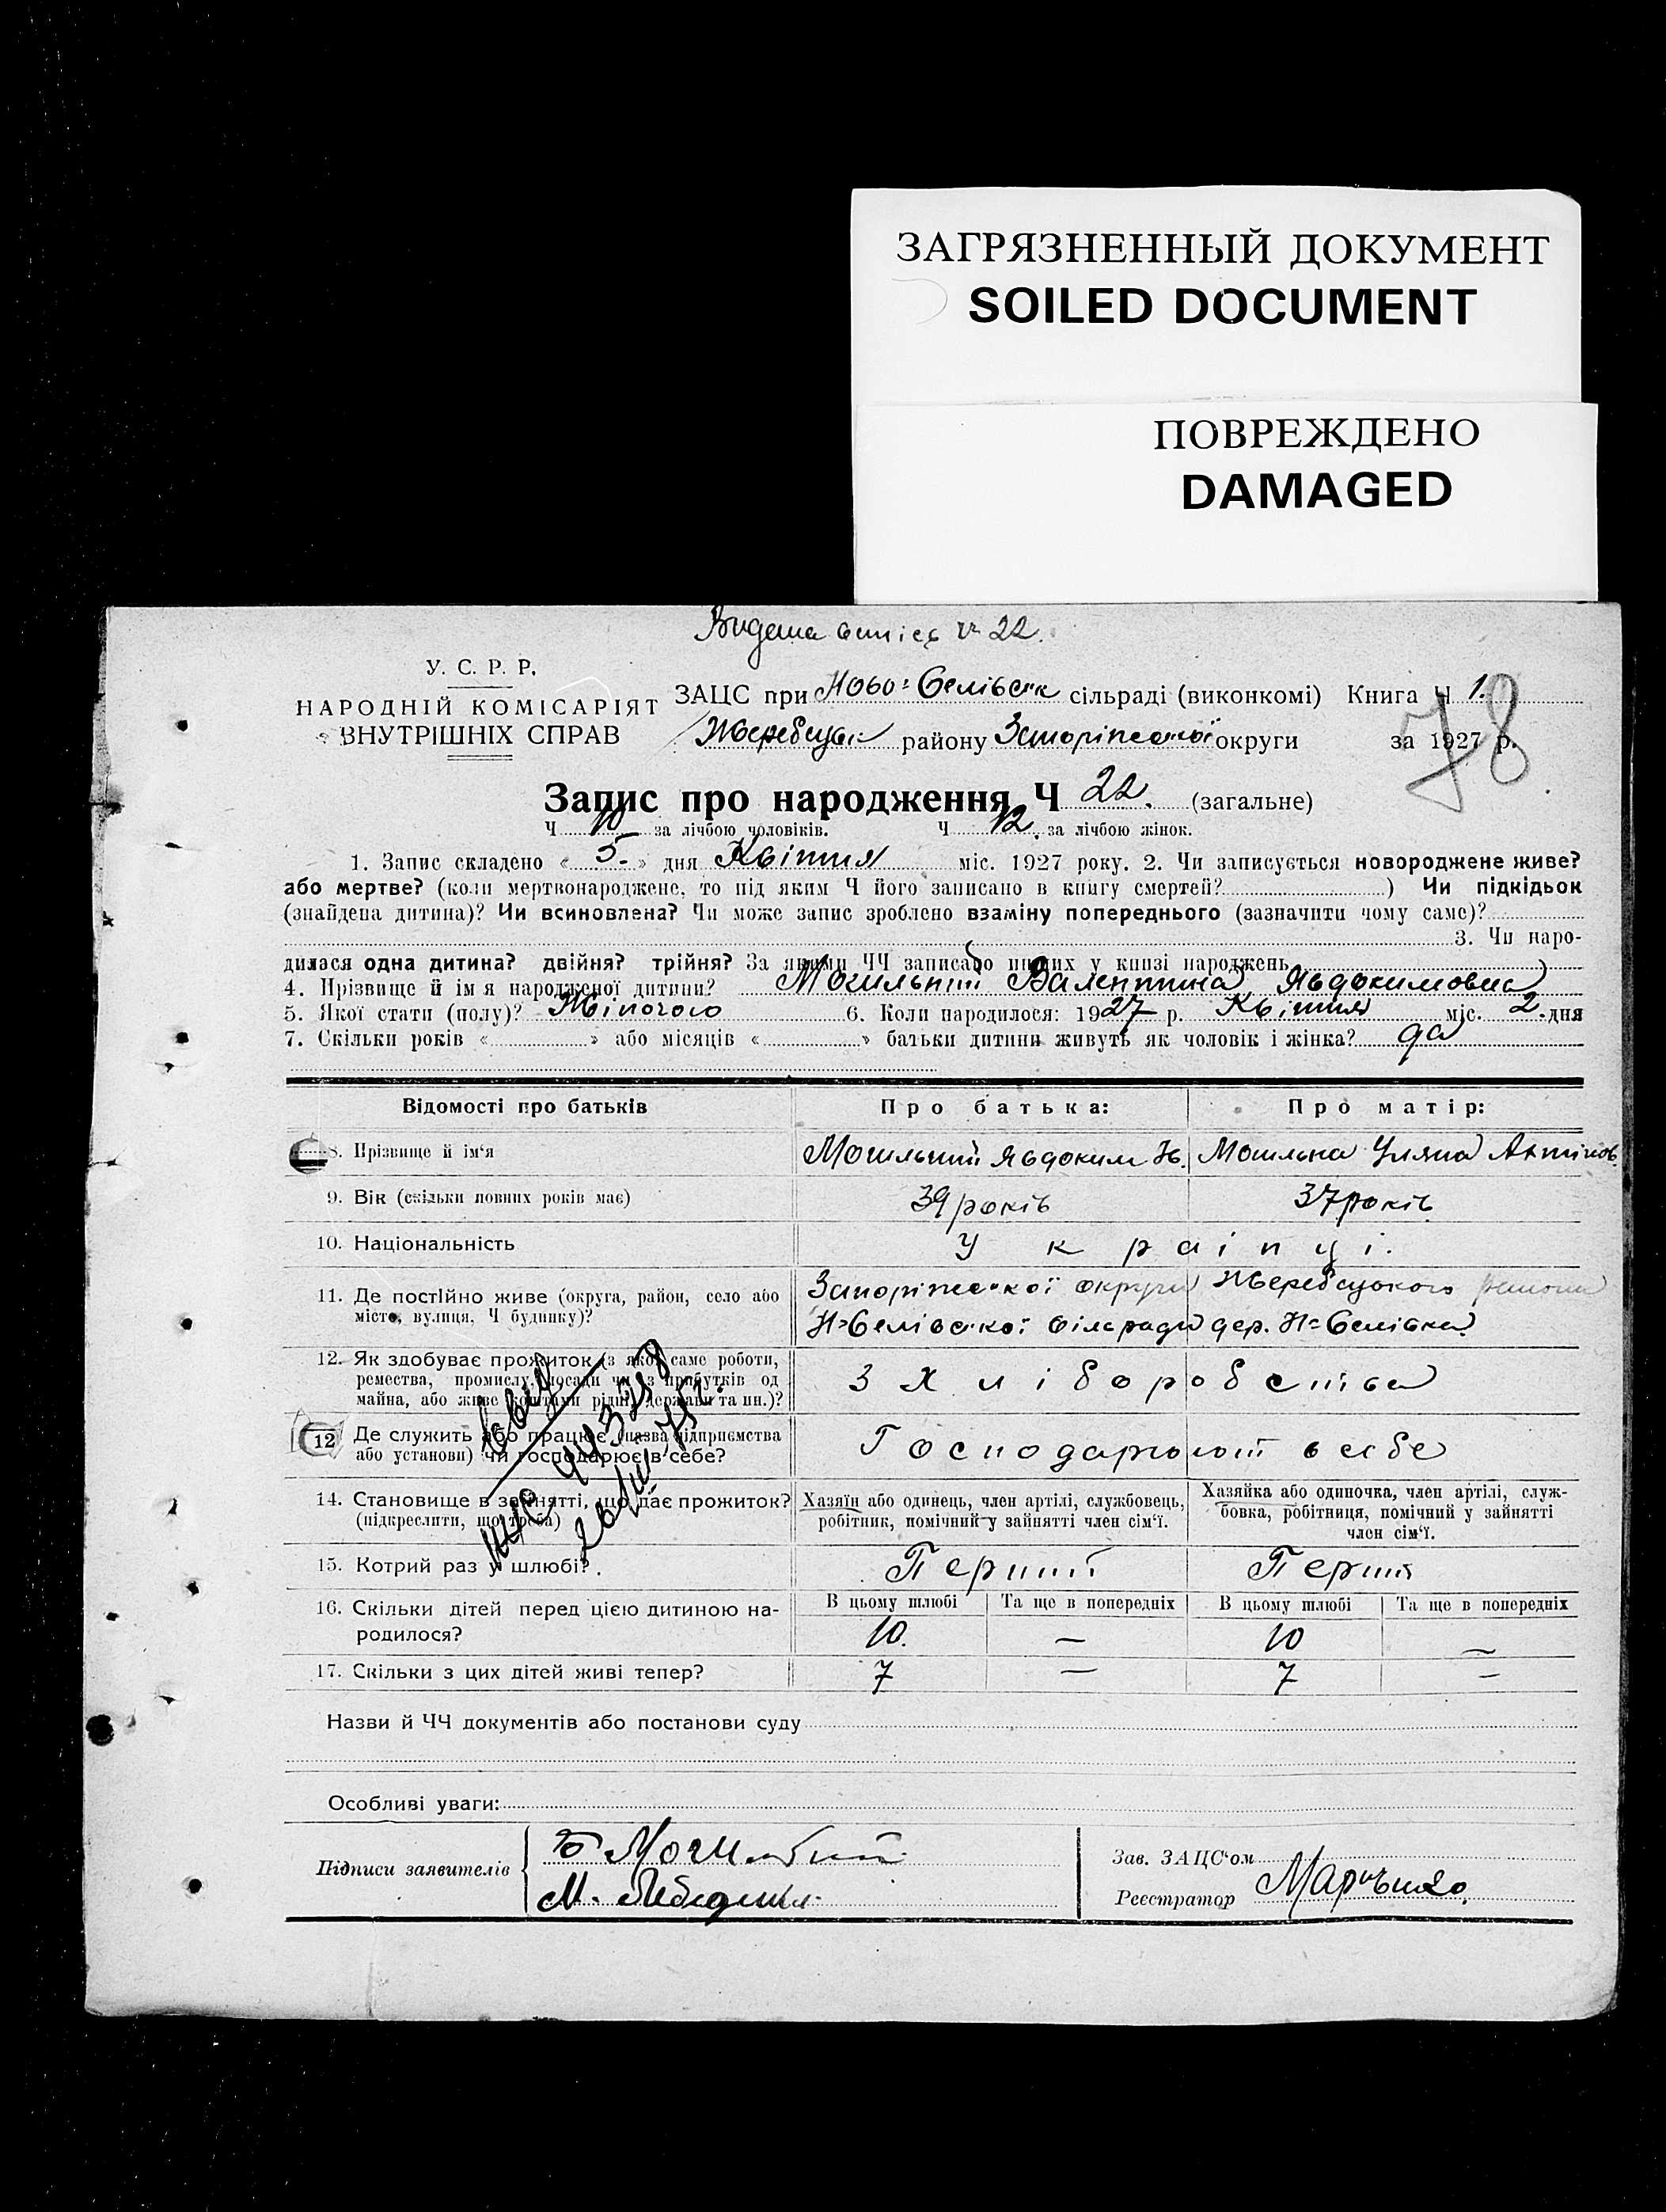 ЗАГРЯЗНЕННЫЙ ДОКУМЕНТ
SOILED DOCUMENT
ПОВРЕЖДЕНО
DAMAGED
Видана № 22.
У. С. Р. Р.
НАРОДНІЙ КОМІСАРІЯТ
ВНУТРІШНІХ СПРАВ
ЗАЦС при Ново-Селівськ сільраді (виконкомі) Книга Ч 1.
78
Жеребецьк району Запоріжської округи за 1927 р.
Запис про народження Ч 22. (загальне)
Ч 10 за лічбою чоловіків. Ч 12. за лічбою жінок.
1. Запис складено « 5. » дня Квітня міс. 1927 року. 2. Чи записується новороджене живе?
або мертве? (коли мертвонароджене, то під яким Ч його записано в книгу смертей? ) Чи підкідьок
(знайдена дитина)? Чи всиновлена? Чи може запис зроблено взаміну попереднього (зазначити чому саме)?
3. Чи наро-
дилася одна дитина? двійня? трійня? За якими ЧЧ записано инших у книзі народжень
4. Прізвище й ім'я народженої дитини? Могильний Валентина Явдокимовна
5. Якої стати (полу)? Жіночого 6. Коли народилося: 1927 р. Квітня міс. 2. дня
7. Скільки років « » або місяців « » батьки дитини живуть як чоловік і жінка? да
Відомості про батьків Про батька: Про матір:
8. Прізвище й ім'я Могильний Явдоким Могильна Уляна
9. Вік (скільки повних років має) 39 років 37 років
10. Національність Українці.
11. Де постійно живе (округа, район, село або Запоріжської округи Жеребецького
місто, вулиця, Ч будинку)? Н-Селівської Сільради дер. Н-Селівка
12. Як здобуває прожиток (з якої саме роботи,
ремества, промислу, посади чи з прибутків од З Хліборобства
майна, або живе коштами рідні, держави та ин.)?
12 Де служить або працює (назва підприємства Господарюют в себе
або установи) чи господарює в себе?
14. Становище в занятті, що дає прожиток? Хазяїн або одинець, член артілі, службовець, Хазяйка або одиночка, член артілі, служ-
(підкреслити, що треба) робітник, помічний у зайнятті член сім'ї. бовка, робітниця, помічний у зайнятті
член сім'ї.
15. Котрий раз у шлюбі? Перший Перший
16. Скільки дітей перед цією дитиною на- В цьому шлюбі Та ще в попередніх В цьому шлюбі Та ще в попередніх
родилося? 10. — 10 —
17. Скільки з цих дітей живі тепер? 7 — 7 —
Назви й ЧЧ документів або постанови суду
Особливі уваги:
Підписи заявителів Могильний Зав. ЗАЦС'ом
М. Реєстратор